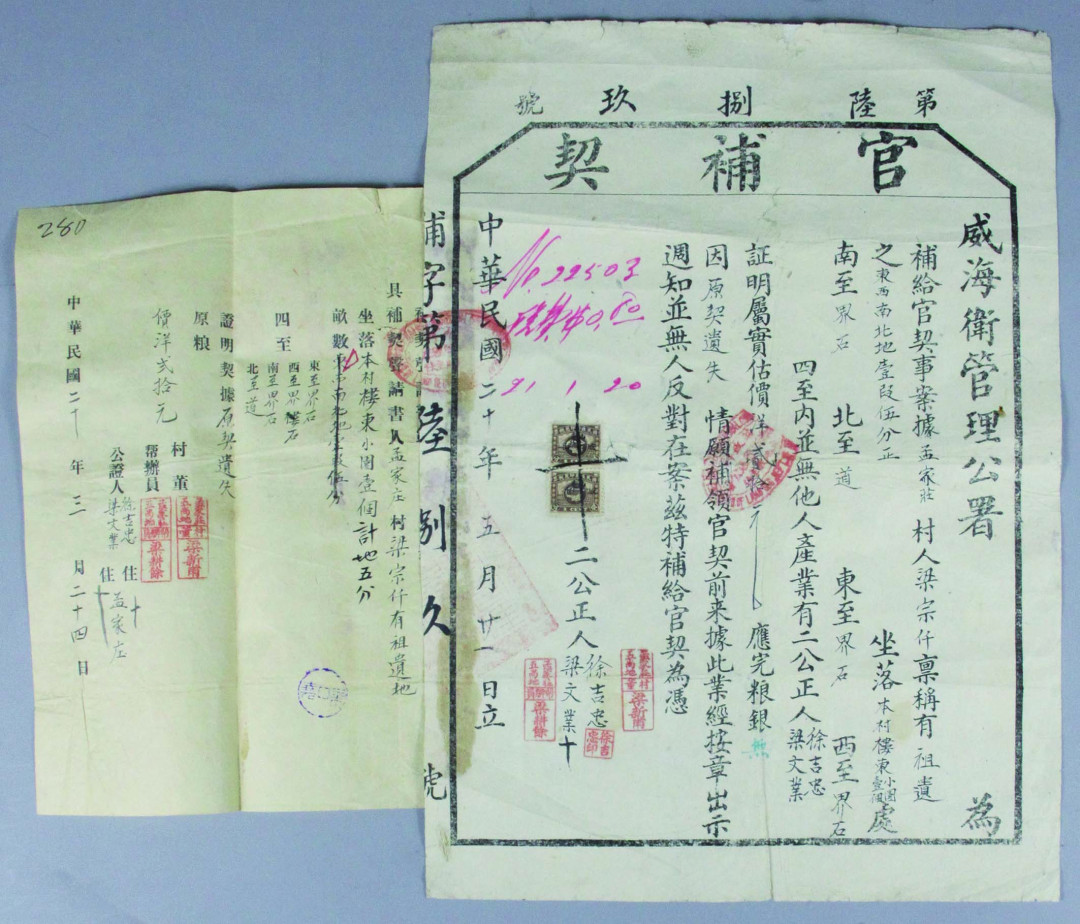 第陸捌玖號
官補契
威海衛管理公署為
補給官契事案據孟家莊村人梁宗仟稟稱有祖遺
之東西南北地壹段伍分正坐落本村樓東小園壹個處
南至界石北至道東至界石西至界石
四至內並無他人產業有二公正人徐吉忠梁文業
証明屬實估價洋貳拾元應完粮銀無
因原契遺失情願補領官契前来據此業經按章出示
週知並無人反對在案茲特補給官契為憑
二公正人徐吉忠梁文業十
梁新甫
梁耕餘
徐吉忠印
中華民國二十年五月廿一日立
No 22503
$0.80
21.1.20
補字第陸捌玖號
280
具補契聲請書人孟家庄村梁宗仟有祖遺地
坐落本村樓東小園壹個計地五分
畝數
四至東至界石西至界石南至界石北至道
證明契據原契遺失
原粮
價洋弍拾元
村董梁新甫
幫辦員梁耕餘
公證人徐吉忠梁文業住住孟家庄
中華民國二十年三月二十四日